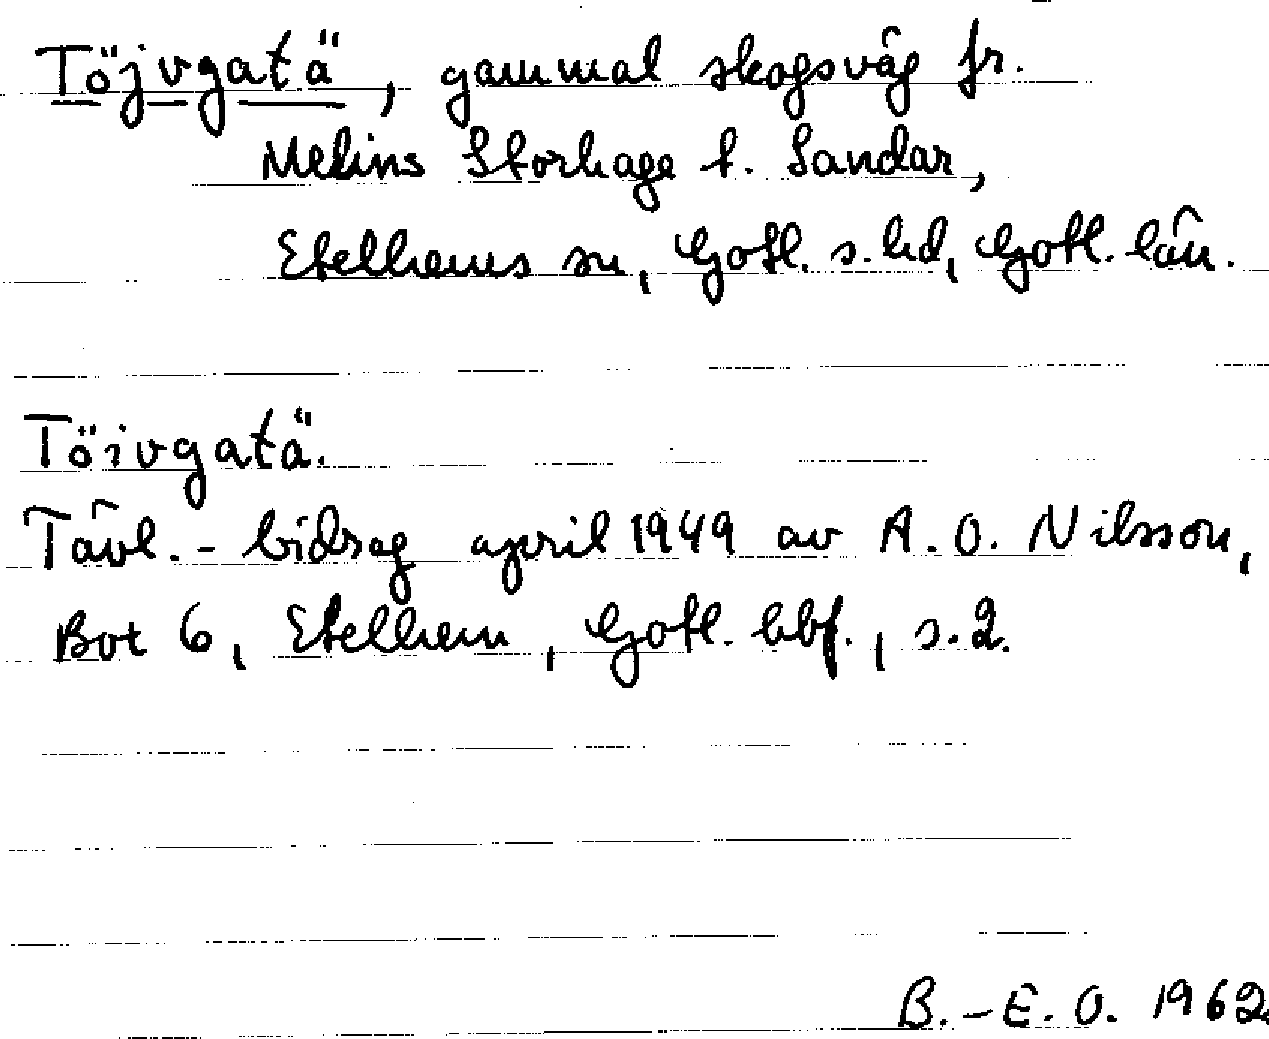 Töjvgatä, gammal skogsväg fr.
Melins Storhage t. Sandar,
Etelhems sn, Gotl. s. hd, Gotl. län.
Töivgatä.
Tävl.-bidrag april 1949 av A. O. Nilsson,
Bot 6, Etelhem, Gotl. hbf., s. 2.
B.-E. O. 1962.